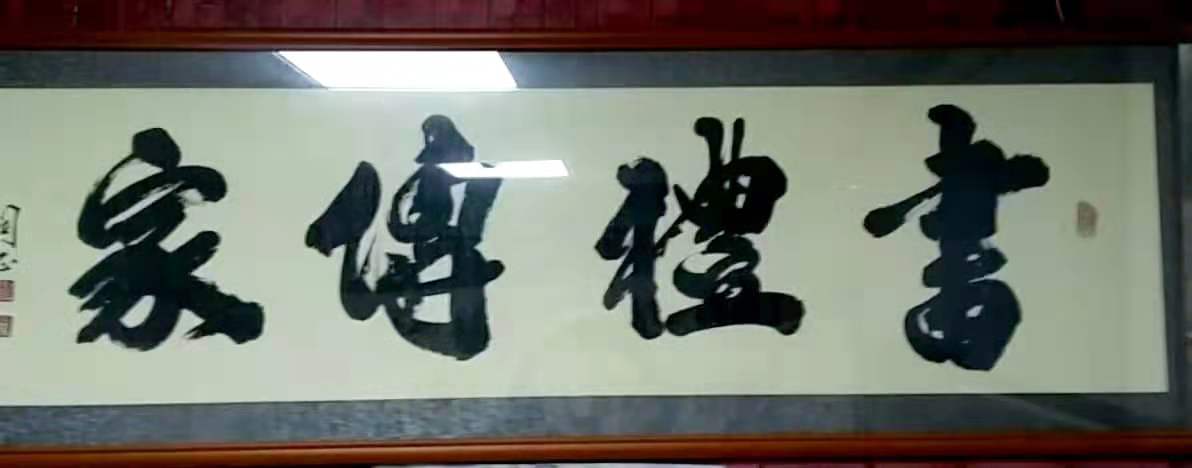 書禮傳家